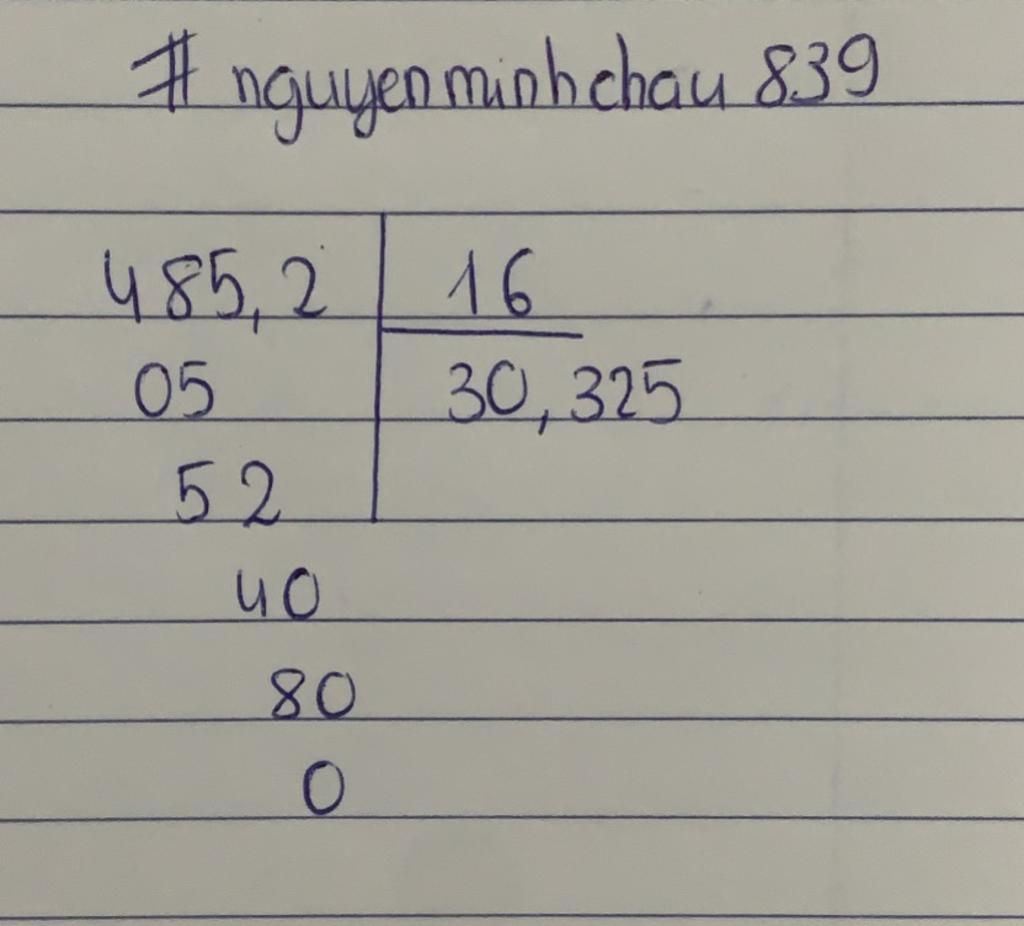 # nguyenminhchau 839
485,2 16
05 30,325
52
40
80
0